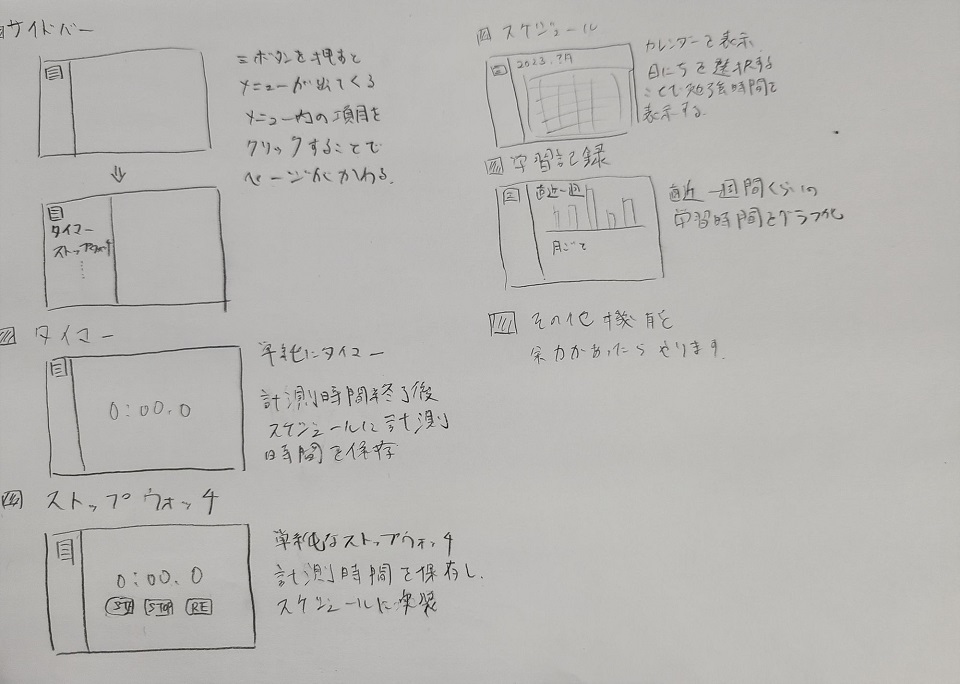 サイドバー
三ボタンを押すと
メニューが出てくる
メニュー内の項目を
クリックすることで
ページがかわる.
タイマー
ストップウォッチ
タイマー
0:00.0
単純にタイマー
計測時間終了後
スケジュールに計測
時間を保存
ストップウォッチ
0:00.0
STOP
RE
単純なストップウォッチ
計測時間を保存し.
スケジュールに実装
スケジュール
2023.?月
カレンダーを表示
日にちを選択する
ことで勉強時間を
表示する.
学習記録
直近一週
月ごと
直近一週間くらいの
学習時間をグラフ化
その他機能
余力があったらやります.